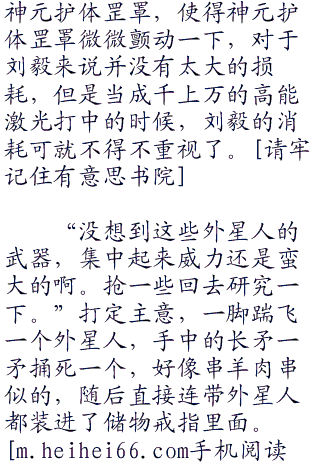 神元护体罡罩，使得神元护
体罡罩微微颤动一下，对于
刘毅来说并没有太大的损
耗，但是当成千上万的高能
激光打中的时候，刘毅的消
耗可就不得不重视了。[请牢
记住有意思书院]
“没想到这些外星人的
武器，集中起来威力还是蛮
大的啊。抢一些回去研究一
下。”打定主意，一脚踹飞
一个外星人，手中的长矛一
矛捅死一个，好像串羊肉串
似的，随后直接连带外星人
都装进了储物戒指里面。
[m.heihei66.com手机阅读